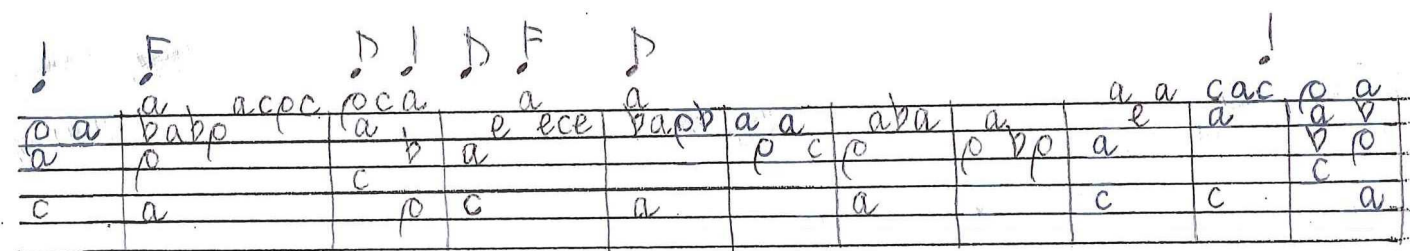 a acpc pca a a a a cac p a
p a babp a e ece bapb a a aba a e a a b
a p b a p c p p bp a b p
c c
c a p c a a c c a